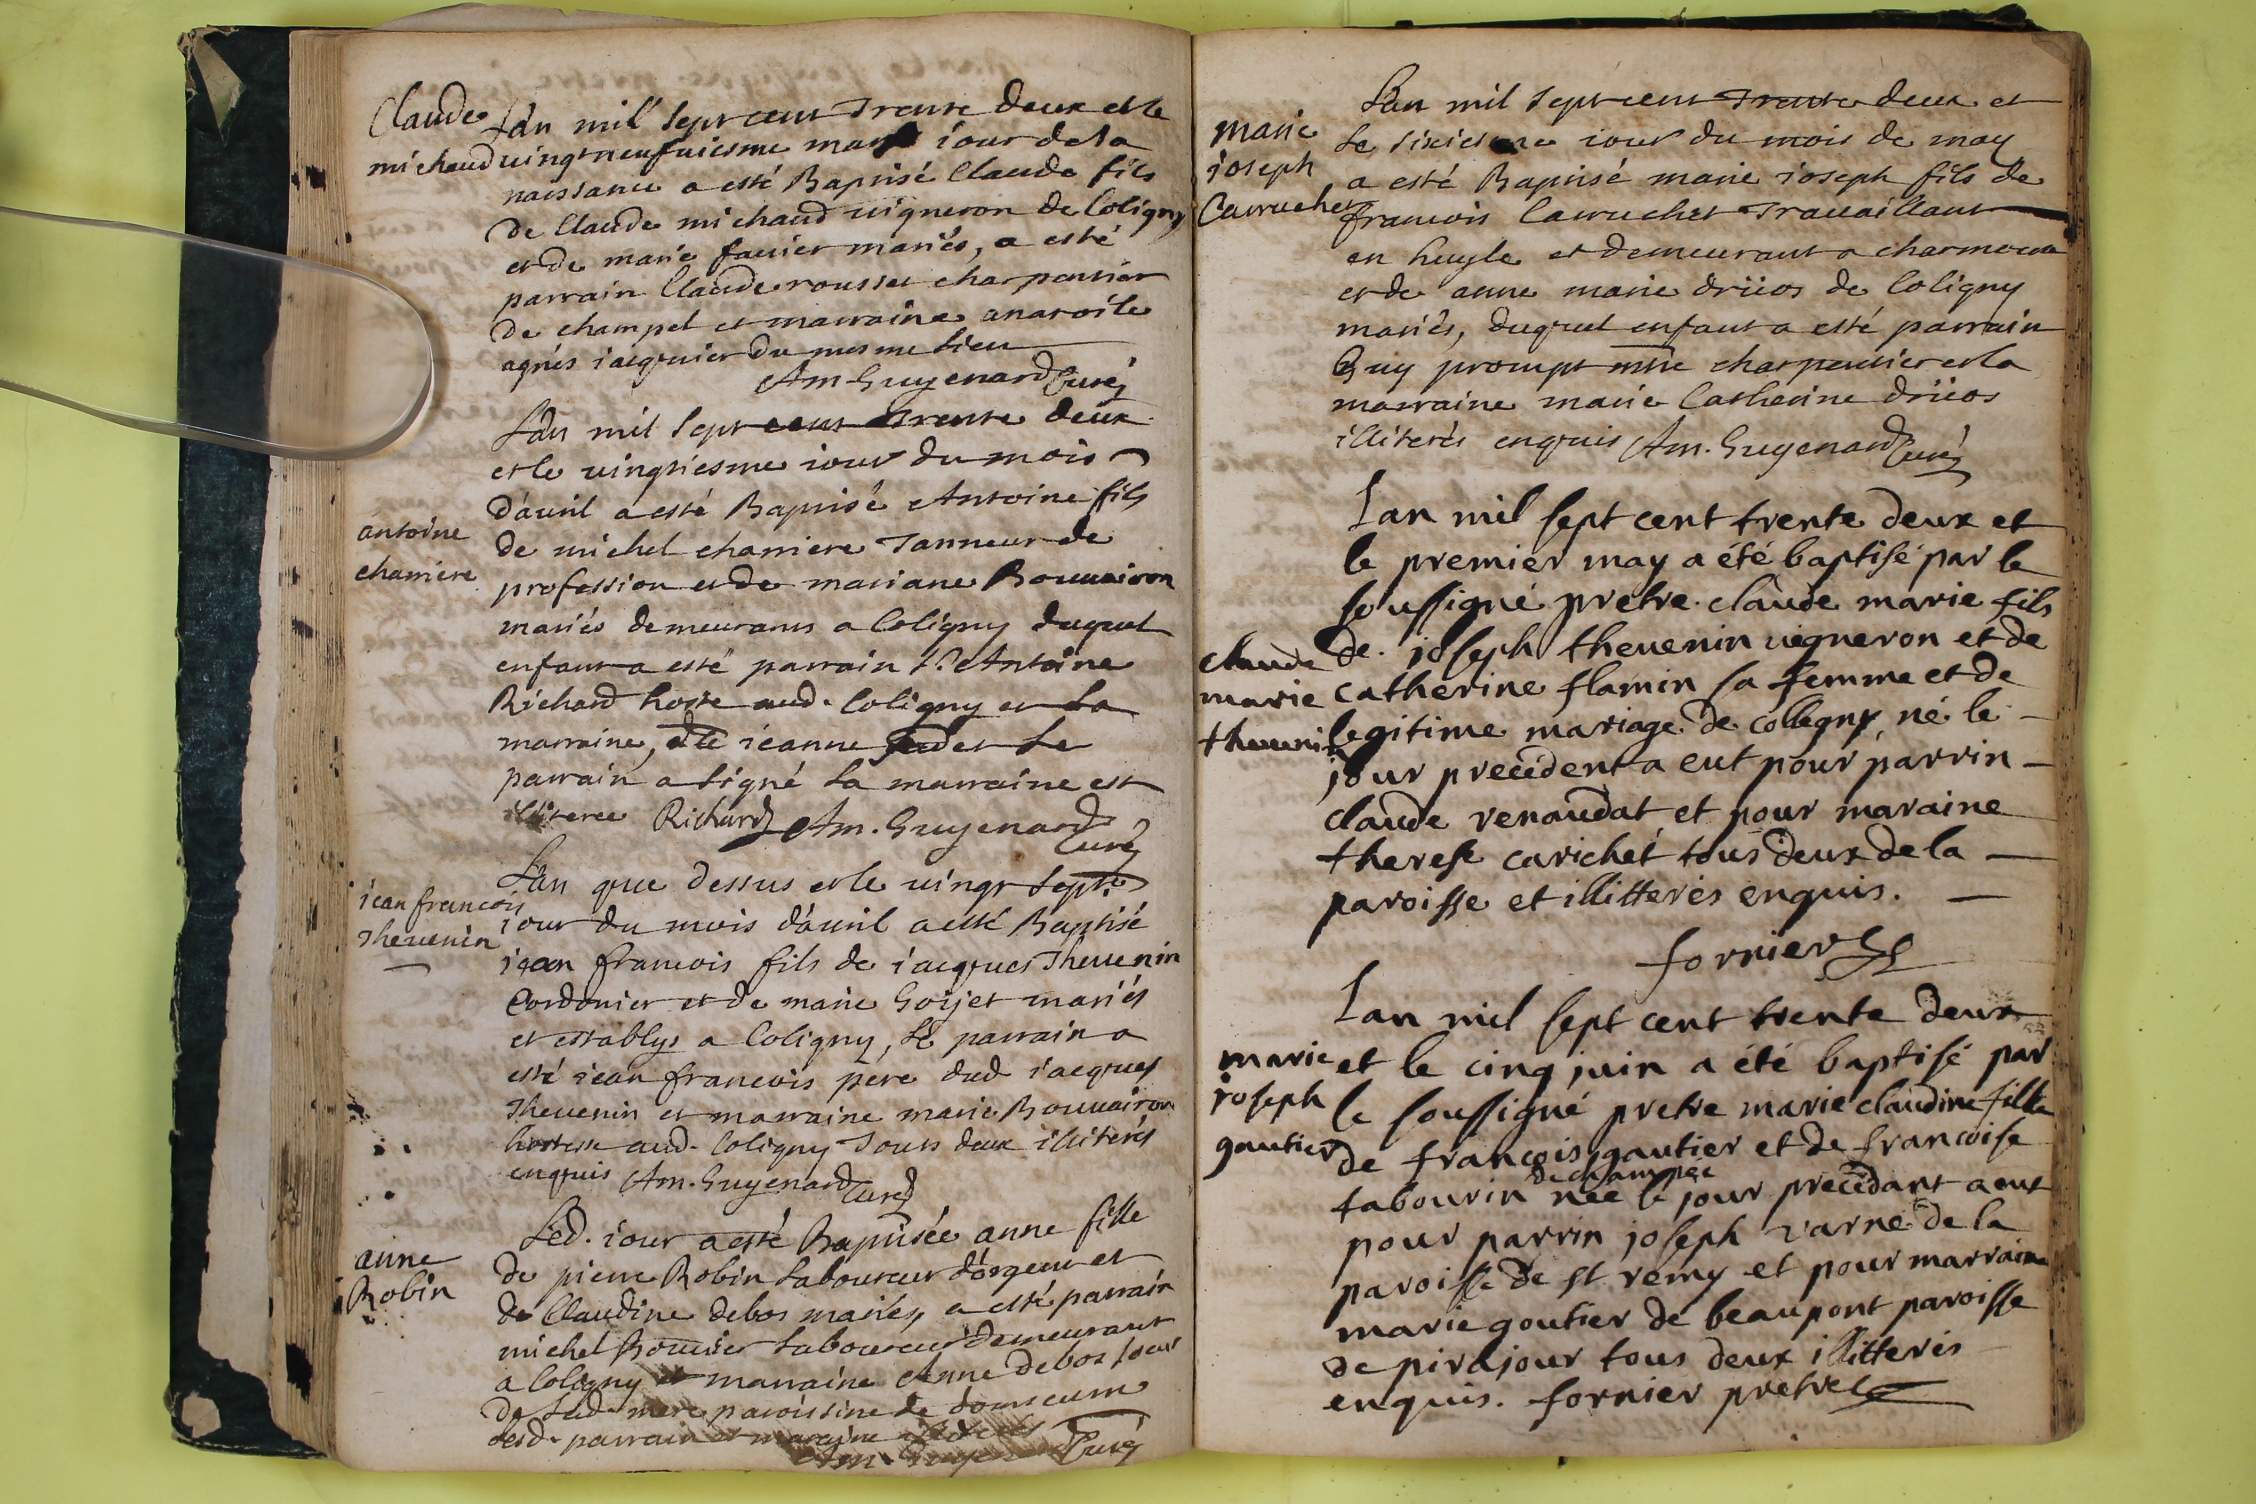 Claude
michaud
L'an mil sept cent Trente deux et le
vingt neufuiesme mars iour de sa
naissance a esté Baptisé Claude fils
de Claude michaud uigneron de Coligny
et de marie fauier mariés, a esté
parrain Claude rousset charpentier
de champel et marraine
agnés iacquier du mesme lieu
Am. Guyenard Curé
antoine
charriere
L'an mil sept cent Trente deux
et le uingtiesme iour du mois
d'auril a esté Baptisé Antoine fils
de michel charriere Tanneur de
profession et de mariane Bouuairon
mariés demeurans a Coligny duquel
enfant a esté parrain Sr. Antoine
Richard hoste aud. Coligny et la
marraine, dlle ieanne et le
parrain a signé la marraine est
illiteree Richard Am. Guyenard
Curé
iean francois
Theuenin
L'an que dessus et le uingt sept
iour du mois d'auril a esté Baptisé
iean francois fils de iacques Theuenin
Cordonier et de marie Goyjet mariés
et establys a Coligny, le parrain a
esté iean francois pere dud iacques
Theuenin et marraine marie Bouuairon
hostesse aud. Coligny Tous deux illiterés
enquis Am. Guyenard Curé
anne
Robin
Led. iour a esté Baptisée anne fille
de pierre Robin Laboureur d'orgeur et
de Claudine debos mariés, a esté parrain
michel Bouuier Laboureur demeurant
a Coligny et marraine Anne debos soeur
de lad. mere paroissine de
lesd. parrain et maraine
Curé
marie
ioseph
Carruchet
L'an mil sept cent Trente deux et
le sixiesme iour du mois de may
a esté Baptisé marie ioseph fils de
francois Carruchet Trauaillant
en huyle et demeurant a charmoux
et de anne marie drüos de Coligny
mariés, duquel enfant a esté parrain
Guy prompt mre charpentier et la
marraine marie Catherine drüos
illiterés enquis Am. Guyenard Curé
claude
marie
theuenin
Lan mil sept cent trente deux et
le premier may a été baptisé par le
soussigné pretre. claude marie fils
de. joseph theuenin uigneron et de
catherine flamin sa femme et de
legitime mariage de collegny né le
jour precedent a eut pour parrin
claude renaudat et pour maraine
therese carichet tous deux de la
paroisse et illitterés enquis.
fornier
marie
joseph
gautier
Lan mil sept cent trente deux
et le cinq juin a été baptisé par
le soussigné pretre marie claudine fille
de françois gautier et de francoise
de champel
tabourin née le jour precedant a eut
pour parrin joseph varne de la
paroisse de st remy et pour marraine
marie goutier de beaupont paroisse
de pirajour tous deux illitterés
enquis. fornier pretre